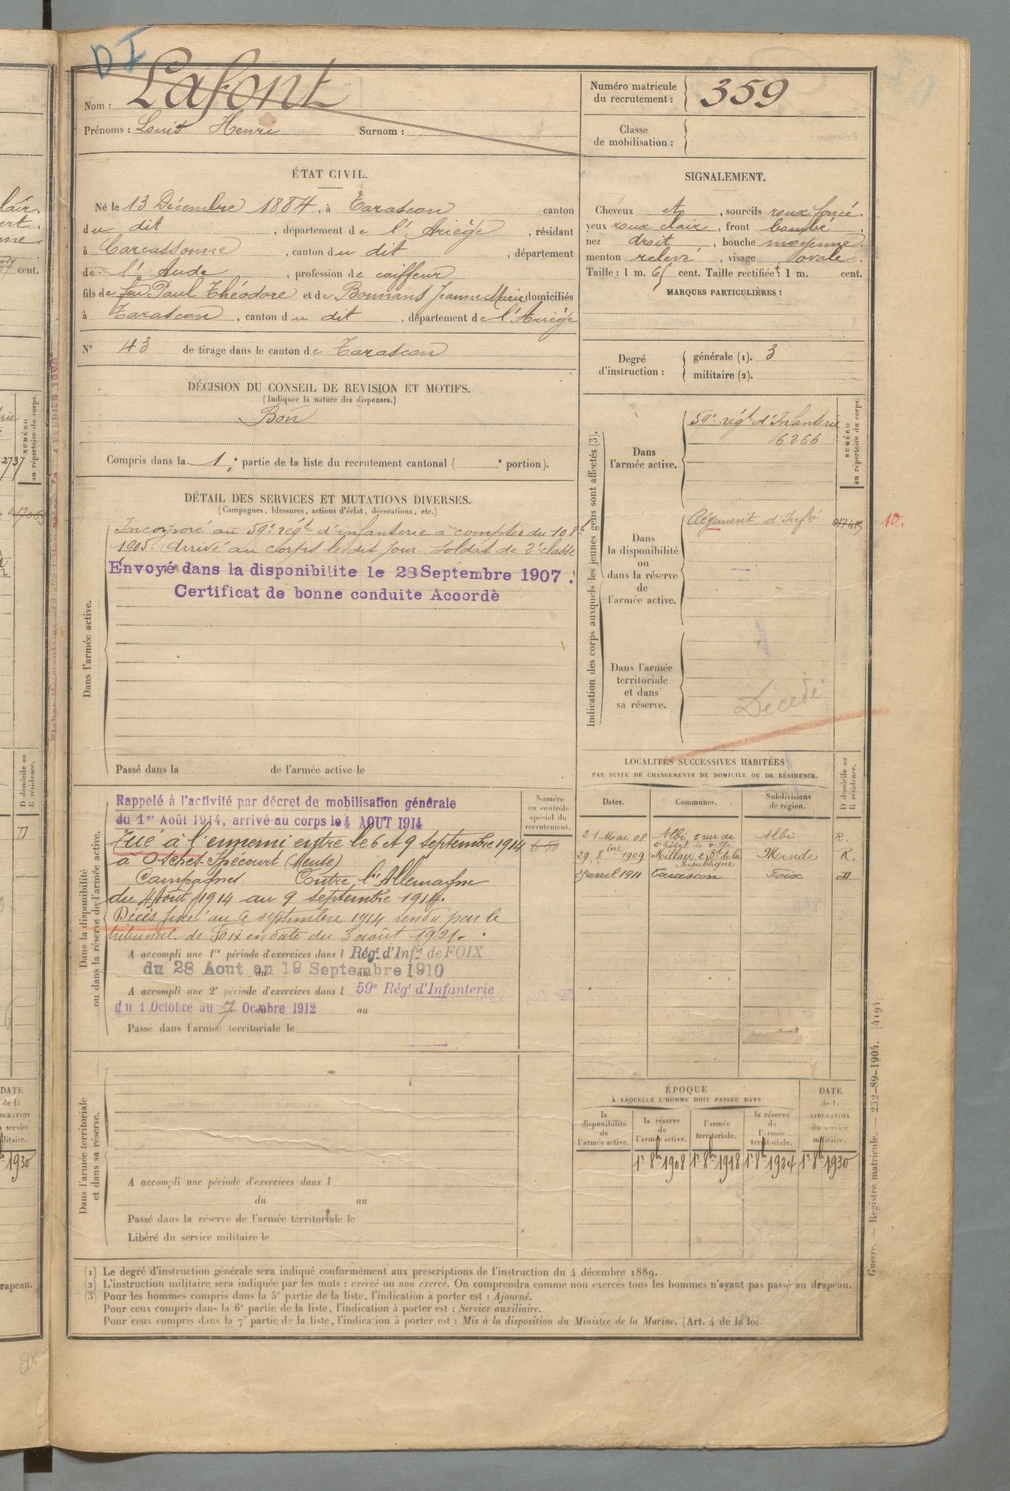 DI
Nom : Lafont
Prénoms : Louis Henri Surnom :
Numéro matricule du recrutement : 359
Classe de mobilisation :
ÉTAT CIVIL.
Né le 13 Décembre 1884, à Tarascon canton
du dit, département de l'Ariège, résidant
à Carcassonne, canton du dit, département
de l'Aude, profession de coiffeur
fils de feu Paul Théodore et de Bonnans Jeanne Marie domiciliés
à Tarascon, canton du dit, département de l'Ariège
N° 43 de tirage dans le canton de Tarascon
SIGNALEMENT.
Cheveux et, sourcils roux foncé
yeux roux clair, front bombé
nez droit, bouche moyenne
menton relevé, visage ovale.
Taille : 1 m. 65 cent. Taille rectifiée : 1 m. cent.
MARQUES PARTICULIÈRES :
Degré d'instruction :
générale (1). 3
militaire (2).
DÉCISION DU CONSEIL DE REVISION ET MOTIFS.
(Indiquer la nature des dispenses.)
Bon
Compris dans la 1e partie de la liste du recrutement cantonal ( e portion).
DÉTAIL DES SERVICES ET MUTATIONS DIVERSES.
(Campagnes, blessures, actions d'éclat, décorations, etc.)
Dans l'armée active.
Incorporé au 59e régt d'infanterie à compter du 10 8bre
1905. Arrivé au corps le dit jour. Soldat de 2e classe
Envoyé dans la disponibilite le 28 Septembre 1907.
Certificat de bonne conduite Accordè
Passé dans la de l'armée active le
Indication des corps auxquels les jeunes gens sont affectés (3).
NUMÉRO au répertoire du corps.
Dans l'armée active.
59e régt d'Infanterie
6366
Dans la disponibilité ou dans la réserve de l'armée active.
Régiment d'Infie
10.
Dans l'armée territoriale et dans sa réserve.
Décédé
Dans la disponibilité ou dans la réserve de l'armée active.
Numéro au contrôle spécial du recrutement.
Rappelé à l'activité par décret de mobilisation générale
du 1er Août 1914, arrivé au corps le 4 AOUT 1914
Tué à l'ennemi entre le 6 et 9 septembre 1914
à Osches Ipécourt (Meuse)
Campagnes Contre l'Allemagne
du 4 Août 1914 au 9 septembre 1914.
Décès fixé au 6 septembre 1914 rendu par le
tribunal de Foix en date du 3 août 1921.
A accompli une 1re période d'exercices dans l Régt d'Infie de FOIX
du 28 Aout au 19 Septembre 1910
A accompli une 2e période d'exercices dans l 59e Régt d'Infanterie
du 1 Octobre au 7 Octobre 1912 au
Passé dans l'armée territoriale le
LOCALITÉS SUCCESSIVES HABITÉES
PAR SUITE DE CHANGEMENTS DE DOMICILE OU DE RÉSIDENCE.
Dates. Communes. Subdivisions de région. D domicile ou R résidence.
21 Mai 08 Albi 5 rue de Albi R.
29 8bre 1909 Millau 2 Bd de la République Mende R.
avril 1911 Tarascon Foix D
Dans l'armée territoriale et dans sa réserve.
A accompli une période d'exercices dans l
du au
Passé dans la réserve de l'armée territoriale le
Libéré du service militaire le
ÉPOQUE
À LAQUELLE L'HOMME DOIT PASSER DANS
la disponibilité de l'armée active.
la réserve de l'armée active.
l'armée territoriale.
la réserve de l'armée territoriale.
DATE de la LIBÉRATION du service militaire.
1er 8bre 1908 1er 8bre 1918 1er 8bre 1924 1er 8bre 1930
(1) Le degré d'instruction générale sera indiqué conformément aux prescriptions de l'instruction du 4 décembre 1889.
(2) L'instruction militaire sera indiquée par les mots : exercé ou non exercé. On comprendra comme non exercés tous les hommes n'ayant pas passé au drapeau.
(3) Pour les hommes compris dans la 5e partie de la liste, l'indication à porter est : Ajourné.
Pour ceux compris dans la 6e partie de la liste, l'indication à porter est : Service auxiliaire.
Pour ceux compris dans la 7e partie de la liste, l'indication à porter est : Mis à la disposition du Ministre de la Marine. (Art. 4 de la loi.
Guerre. — Registre matricule. — 232-89-1904. [419]